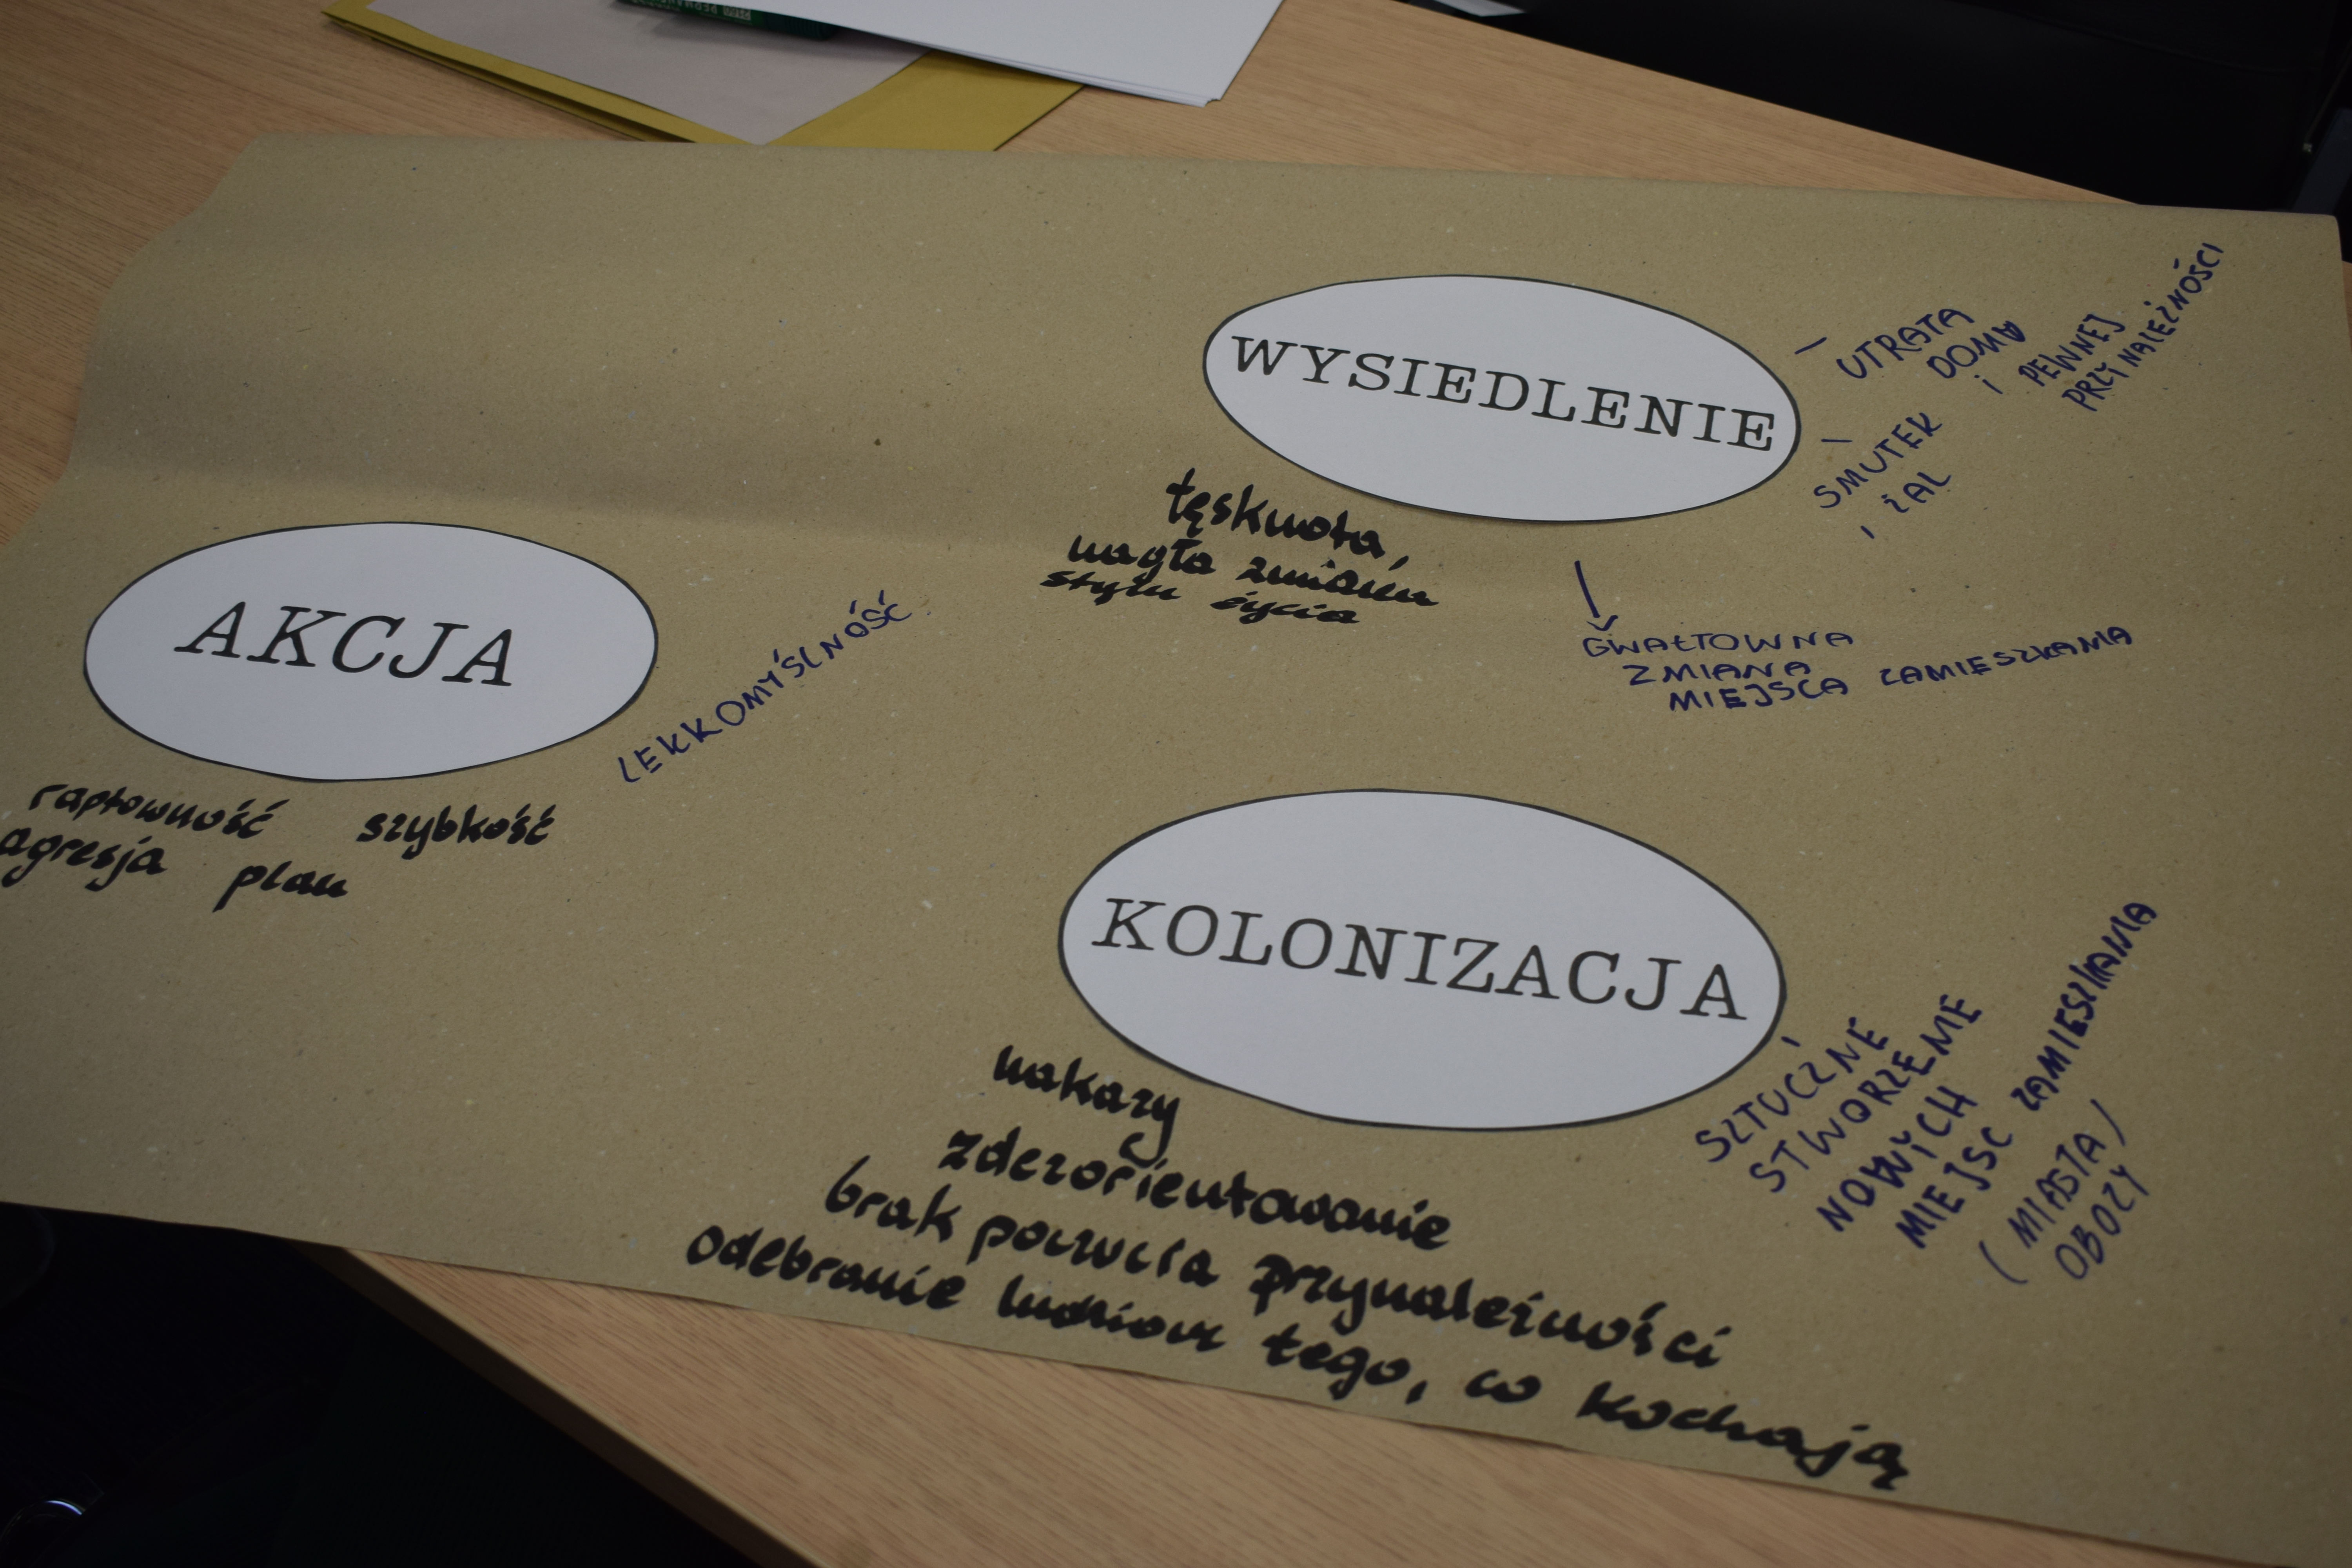 WYSIEDLENIE
– UTRATA
DOMU
i PEWNEJ
PRZYNALEŻNOŚCI
– SMUTEK
i ŻAL
tęsknota,
nagła zmiana
stylu życia
GWAŁTOWNA
ZMIANA
MIEJSCA ZAMIESZKANIA
AKCJA
LEKKOMYŚLNOŚĆ
raptowność szybkość
agresja plan
KOLONIZACJA
nakazy
zdezorientowanie
brak poczucia przynależności
odebranie ludziom tego, co kochają
SZTUCZNE
STWORZENIE
NOWYCH
MIEJSC ZAMIESZKANIA
(MIASTA /
OBOZY